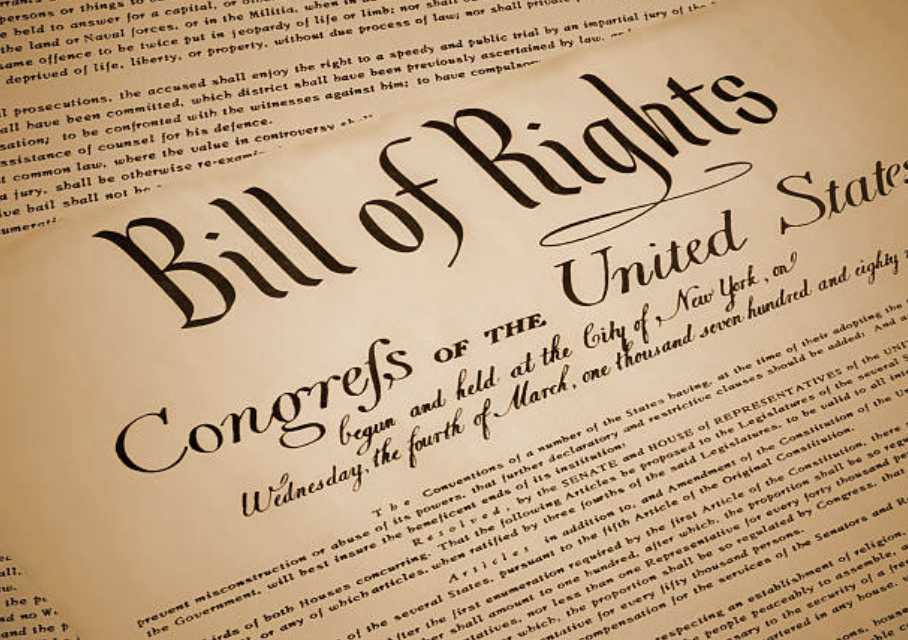 persons or things to
be held to answer for a capital, or
the land or Naval forces, or in the Militia, when in
same offence to be twice put in jeopardy of life or limb; nor shall
deprived of life, liberty, or property, without due process of law; nor shall private
prosecutions, the accused shall enjoy the right to a speedy and public trial by an impartial jury of the
shall have been committed, which district shall have been previously ascertained by law,
to be confronted with the witnesses against him; to have
assistance of counsel for his defence.
common law, where the value in controversy
a jury, shall be otherwise
bail shall not be
Bill of Rights
Congreſs OF THE United States
begun and held at the City of New York, on
Wednesday, the fourth of March, one thousand seven hundred and eighty
The Conventions of a number of the States having, at the time of their adopting the
prevent misconstruction or abuse of its powers, that further declaratory and restrictive clauses should be added: And
the Government, will best insure the beneficent ends of its institution:
Resolved, by the SENATE and HOUSE of REPRESENTATIVES of the
of both Houses concurring. That the following Articles be proposed to the Legislatures of the several
or any of which articles, when ratified by three fourths of the said Legislatures, to be valid to all
Articles in addition to, and Amendment of the Constitution of the
of the several States, pursuant to the fifth Article of the Original Constitution.
the first enumeration required by the first Article of the Constitution, there
shall amount to one hundred, after which, the proportion shall be so
nor less than one Representative for every forty thousand
the proportion shall be so regulated by Congress, that
for every fifty thousand persons.
compensation for the services of the Senators and
respecting an establishment of religion,
people peaceably to assemble,
to the security of a
in any house,